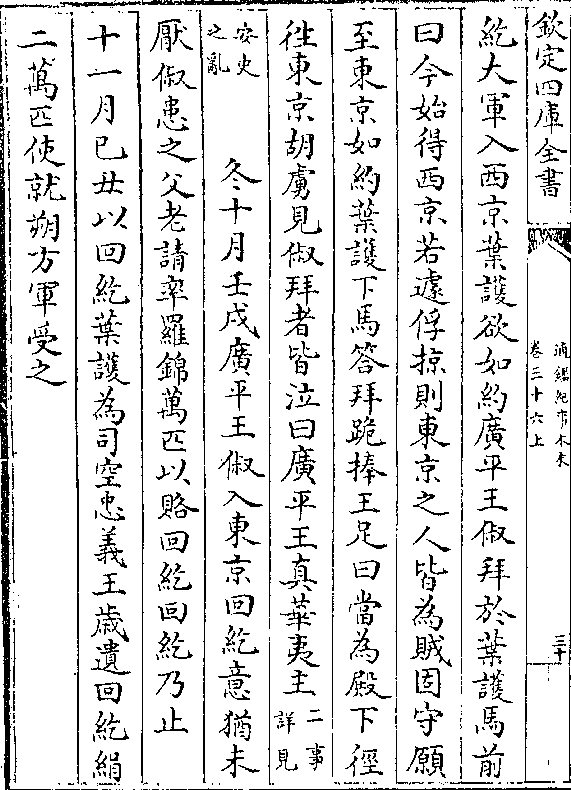 欽定四庫全書
通鑑紀事本末
卷三十六上
三十
紇大軍入西京葉護欲如約廣平王俶拜於葉護馬前
曰今始得西京若遽俘掠則東京之人皆為賊固守願
至東京如約葉護下馬答拜跪捧王足曰當為殿下徑
徃東京胡虜見俶拜者皆泣曰廣平王真華夷主二事詳見
安史之亂冬十月壬戌廣平王俶入東京回紇意猶未
厭俶患之父老請率羅錦萬匹以賂回紇回紇乃止
十一月已丑以回紇葉護為司空忠義王歲遺回紇絹
二萬匹使就朔方軍受之